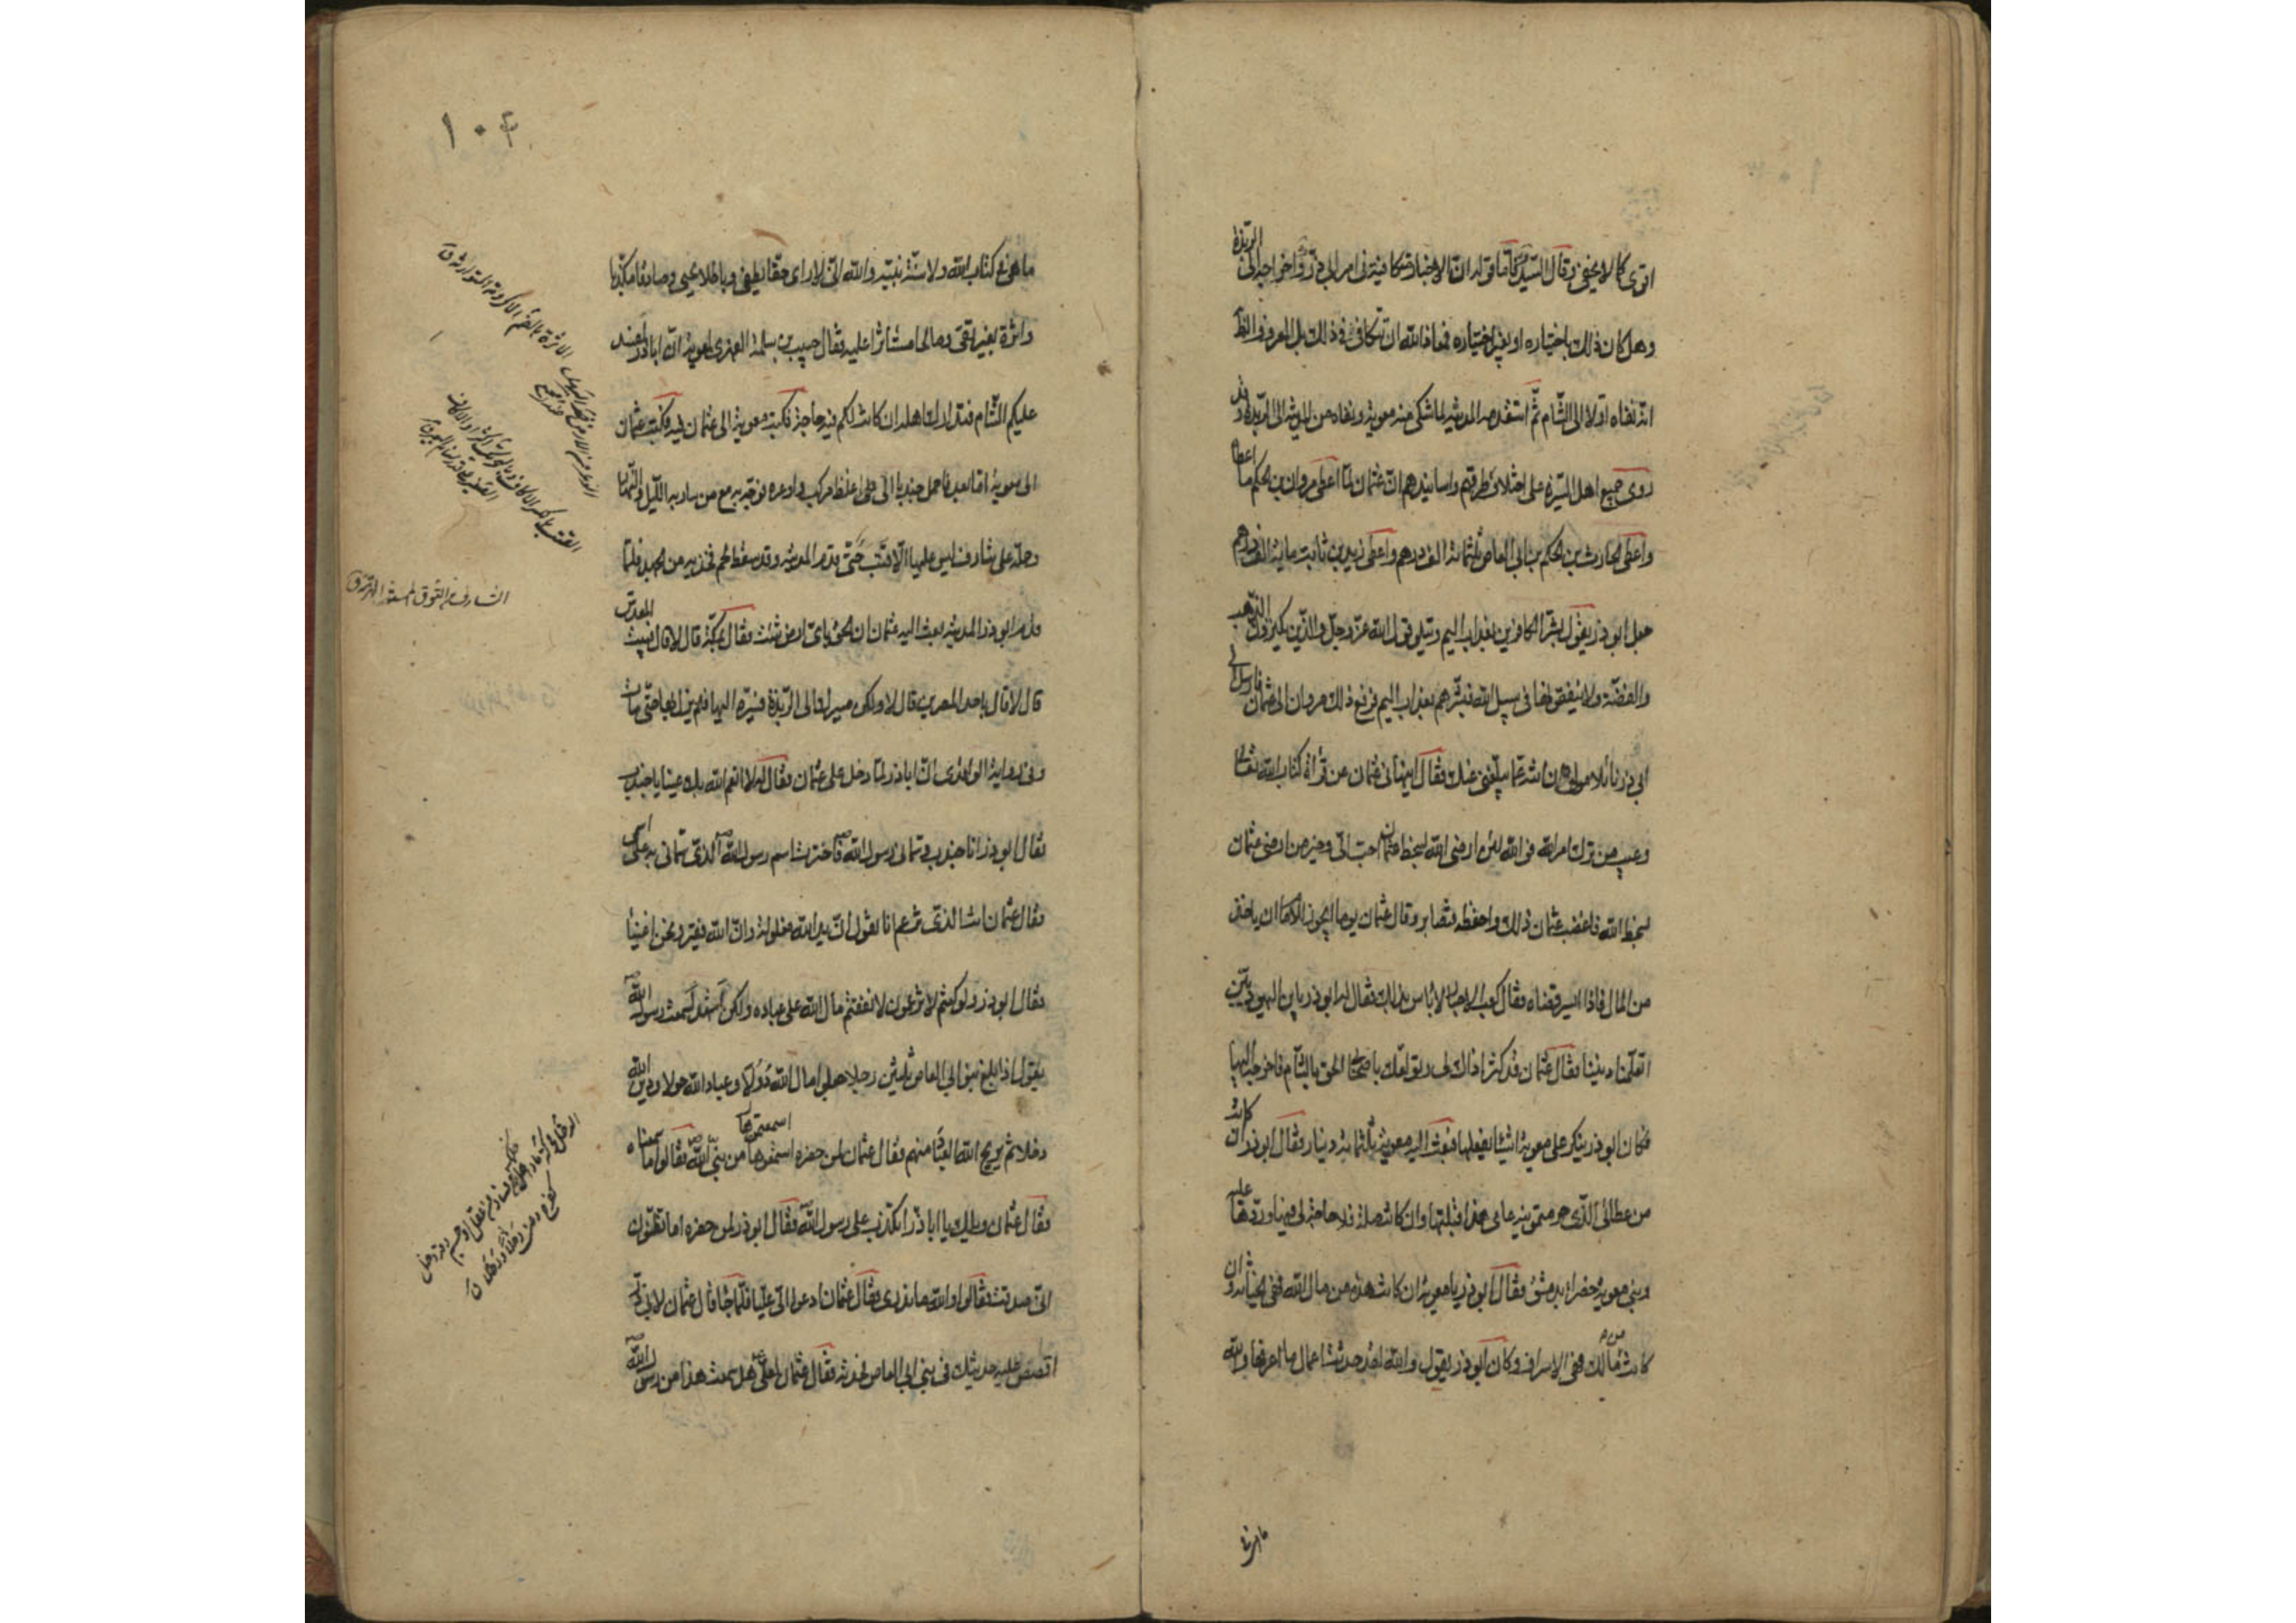 اقوى كما لا يخفى وقال السيد فاما قوله ان الاخبار متكافية في امر ابي ذر واخراجه الى الربذة
وهل كان ذلك باختياره او بغير اختياره فمعاذ الله ان تتكافى في ذلك بل المعروف الظ
انه نفاه اولا الى الشام ثم استقدمه المدينه لما شكى منه معوية ونفاه من المدينه الى الربذة وقد
روى جميع اهل السيرة على اختلاف طرقهم واسانيدهم ان عثمان لما اعطى مروان بن الحكم ما اعطاه
واعطى الحارث بن الحكم بن ابي العاص ثلثمائة الف درهم واعطى زيد بن ثابت ماية الف درهم
جعل ابو ذر يقول بشر الكافرين بعذاب اليم ويتلو قول الله عز وجل والذين يكنزون الذهب
والفضة ولا ينفقونها في سبيل الله فبشرهم بعذاب اليم فرفع ذلك مروان الى عثمان فارسل الى
ابي ذر نائلا مولاه ان انته عما يبلغني عنك فقال اينهاني عثمان عن قراءة كتاب الله تعالى
وعيب من ترك امر الله فو الله لئن ارضى الله بسخط عثمان احب الي وخير من ارضى عثمان
بسخط الله فاغضب عثمان ذلك واحفظه فتصابر وقال عثمان يوما ايجوز للامام ان ياخذ
من المال فاذا ايسر قضاه فقال كعب الاحبار لا باس بذلك فقال له ابو ذر يابن اليهوديين
اتعلمنا ديننا فقال عثمان قد كثر اذاك لي وتولعك باصحابي الحق بالشام فاخرجه اليها
فكان ابو ذر ينكر على معوية اشياء يفعلها فبعث اليه معوية بثلثماية دينار فقال ابو ذر ان كانت
من عطائي الذي حرمتمونيه عامي هذا قبلتها وان كانت صلة فلا حاجة لي فيها وردها عليه
وبنى معوية خضراء بدمشق فقال ابو ذر يا معوية ان كانت هذه من مال الله فهي الخيانة وان
كانت من مالك فهي الاسراف وكان ابو ذر يقول والله لقد حدثت اعمال ما اعرفها والله
ما هي في
١٠٤
ما هي في كتاب الله ولا سنة نبيه والله اني لارى حقا يطفى وباطلا يحيى وصادقا مكذبا
واثرة بغير تقى وصالحا مستاثرا عليه فقال حبيب بن مسلمة الفهري لمعوية ان ابا ذر لمفسد
عليكم الشام فتدارك اهله ان كانت لكم فيه حاجة فكتب معوية الى عثمان فيه فكتب عثمان
الى معوية اما بعد فاحمل جندبا الي على اغلظ مركب واوعره فوجه به مع من سار به الليل والنهار
وحمله على شارف ليس عليها الا قتب حتى قدم المدينه وقد سقط لحم فخذيه من الجهد فلما
قدم ابو ذر المدينه بعث اليه عثمان ان الحق باى ارض شئت فقال بمكة قال لا قال فبيت المقدس
قال لا قال باحد المصرين قال لا ولكن مسيرك الى الربذة فسيره اليها فلم يزل بها حتى مات
وفي رواية الواقدي ان ابا ذر لما دخل على عثمان فقال له لا انعم الله بك عينا يا جنيدب
فقال ابو ذر انا جندب وسماني رسول الله فاخترت اسم رسول الله الذي سماني به على اسمي
فقال عثمان انت الذي تزعم انا نقول ان يد الله مغلولة وان الله فقير ونحن اغنياء
فقال ابو ذر لو كنتم لا تزعمون لانفقتم مال الله على عباده ولكن اشهد لسمعت رسول الله
يقول اذا بلغ بنو ابي العاص ثلثين رجلا جعلوا مال الله دولا وعباد الله خولا ودين الله
دخلا ثم يريح الله العباد منهم فقال عثمان لمن حضره اسمعتموها من نبي الله فقالوا ما سمعناه
فقال عثمان ويلك يا ابا ذر اتكذب على رسول الله فقال ابو ذر لمن حضره اما تظنون
اني صدقت فقالوا والله ما ندري فقال عثمان ادعوا الي عليا فلما جاء قال عثمان لابي ذر
اقصص عليه حديثك في بني ابي العاص فحدثه فقال عثمان لعلي هل سمعت هذا من رسول الله
الشارف من النوق المسنة الهرمة ق